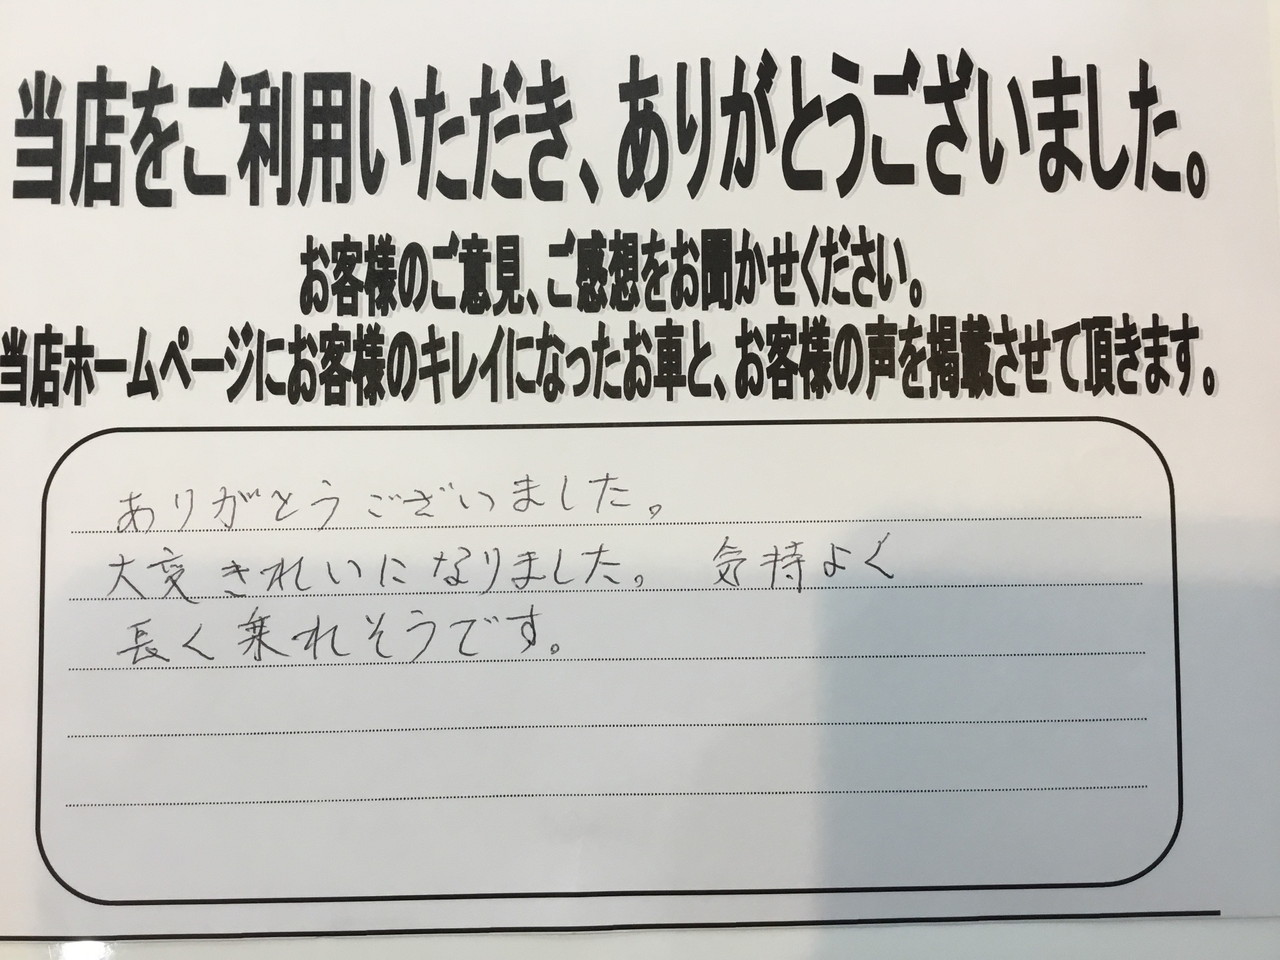 当店をご利用いただき、ありがとうございました。
お客様のご意見、ご感想をお聞かせください。
当店ホームページにお客様のキレイになったお車と、お客様の声を掲載させて頂きます。
ありがとうございました。
大変きれいになりました。気持よく
長く乗れそうです。